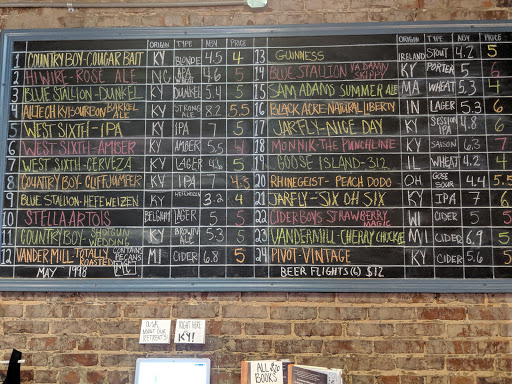 ORIGIN TYPE ABV PRICE
1 COUNTRY BOY-COUGAR BAIT KY BLONDE 4.5 4
2 HI WIRE-ROSE ALE NC 4.6 5
3 BLUE STALLION-DUNKEL KY DUNKEL 5.4 5
4 ALLTECH KY BOURBON BARREL ALE KY STRONG ALE 8.2 5.5
5 WEST SIXTH-IPA KY IPA 7 5
6 WEST SIXTH-AMBER KY AMBER 5.5
7 WEST SIXTH-CERVEZA KY LAGER 4.6 5
8 COUNTRY BOY-CLIFF JUMPER KY IPA 4.5
9 BLUE STALLION-HEFEWEIZEN KY HEFEWEIZEN 3.2 4
10 STELLA ARTOIS BELGIUM LAGER 5 5
11 COUNTRY BOY-SHOTGUN WEDDING KY BROWN ALE 5.3 5
12 VANDER MILL-TOTALLY ROASTED CONTAINS PECANS MI CIDER 6.8 5
MAY 1998
ORIGIN TYPE ABV PRICE
13 GUINNESS IRELAND STOUT 4.2 5
14 BLUE STALLION VA DAMN SKIPPY KY PORTER 5 6
15 SAM ADAMS SUMMER ALE MA WHEAT 5.3 4
16 BLACK ACRE NATURAL LIBERTY IN LAGER 5.3 6
17 JARFLY-NICE DAY KY SESSION IPA 4.8 6
18 MONNIK-THE PUNCHLINE KY SAISON 6.3 7
19 GOOSE ISLAND-312 IL WHEAT 4.2 4
20 RHINEGEIST-PEACH DODO OH GOSE SOUR 4.4 5.5
21 JARFLY-SIX OH SIX KY IPA 7 6
22 CIDERBOYS STRAWBERRY MAGIC WI CIDER 5 5
23 VANDERMILL-CHERRY CHUCKLE MI CIDER 6.9 5
24 PIVOT-VINTAGE KY CIDER 5.6 5
BEER FLIGHTS (6) $12
ASK ABOUT OUR
RIGHT HERE IN KY!
ALL
BOOKS